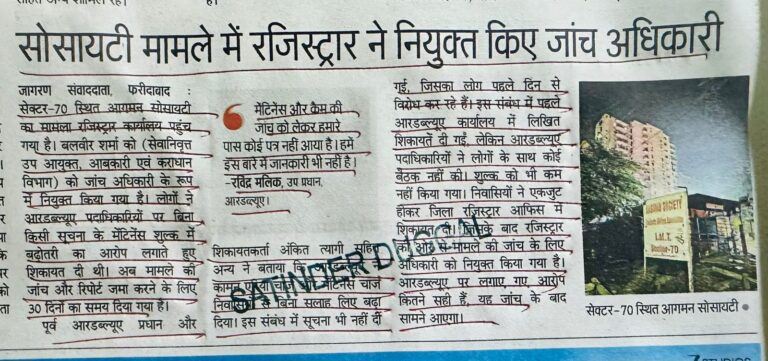 सोसायटी मामले में रजिस्ट्रार ने नियुक्त किए जांच अधिकारी
जागरण संवाददाता, फरीदाबाद :
सेक्टर-70 स्थित आगमन सोसायटी
का मामला रजिस्ट्रार कार्यालय पहुंच
गया है। बलवीर शर्मा को (सेवानिवृत्त
उप आयुक्त, आबकारी एवं कराधान
विभाग) को जांच अधिकारी के रूप
में नियुक्त किया गया है। लोगों ने
आरडब्ल्यूए पदाधिकारियों पर बिना
किसी सूचना के मेंटिनेंस शुल्क में
बढ़ोतरी का आरोप लगाते हुए
शिकायत दी थी। अब मामले की
जांच और रिपोर्ट जमा करने के लिए
30 दिनों का समय दिया गया है।
पूर्व आरडब्ल्यूए प्रधान और
मेंटिनेंस और कैम की
जांच को लेकर हमारे
पास कोई पत्र नहीं आया है। हमें
इस बारे में जानकारी भी नहीं है।
-रविंद्र मलिक, उप प्रधान,
आरडब्ल्यूए।
शिकायतकर्ता अंकित त्यागी सहित
अन्य ने बताया कि
मेंटिनेंस चार्ज
बिना सलाह लिए बढ़ा
दिया। इस संबंध में सूचना भी नहीं दी
गई, जिसका लोग पहले दिन से
विरोध कर रहे हैं। इस संबंध में पहले
आरडब्ल्यूए कार्यालय में लिखित
शिकायतें दी गईं, लेकिन आरडब्ल्यूए
पदाधिकारियों ने लोगों के साथ कोई
बैठक नहीं की। शुल्क को भी कम
नहीं किया गया। निवासियों ने एकजुट
होकर जिला रजिस्ट्रार आफिस में
शिकायत के बाद रजिस्ट्रार
की ओर से मामले की जांच के लिए
अधिकारी को नियुक्त किया गया है।
आरडब्ल्यूए पर लगाए गए आरोप
कितने सही हैं, यह जांच के बाद
सामने आएगा।
SATINDER DUGGAN
सेक्टर-70 स्थित आगमन सोसायटी